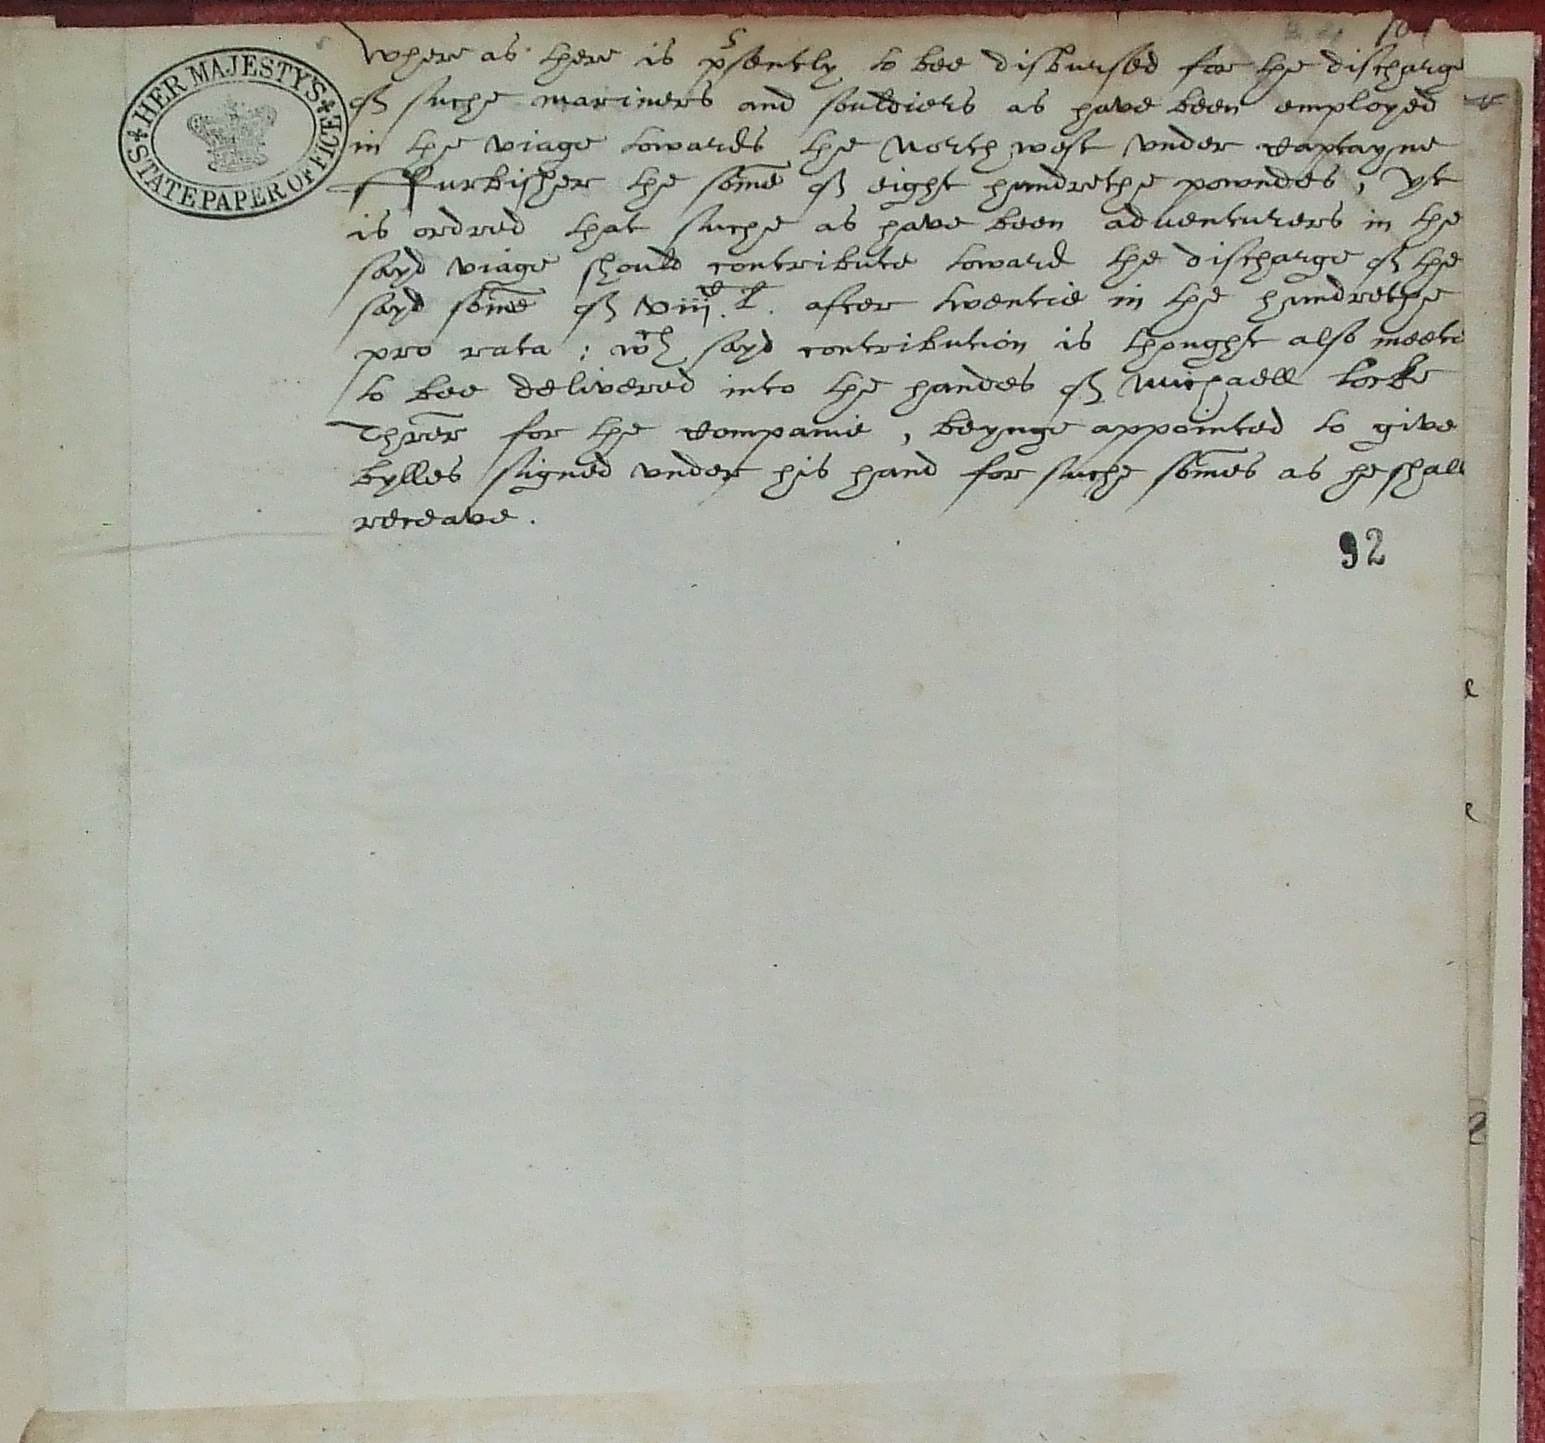 101
HER MAJESTY'S
STATE PAPER OFFICE
Where as there is p̄sently to bee disbursed for the discharge
of suche mariners and souldiers as have been employed
in the viage towards the North west vnder Captayne
ffurbisher the som̄e of eight hundrethe powndes, yt
is ordred that suche as have been adventurers in the
sayd viage should contribute toward the discharge of the
sayd som̄e of viijᶜ.ˡ. after twentie in the hundrethe
pro rata : wᶜʰ sayd contribution is thought also meete
to bee delivered into the handes of Michaell Locke
Thr̄er for the Companie, beynge appointed to give
bylles signed vnder his hand for suche som̄es as he shall
receave.
92